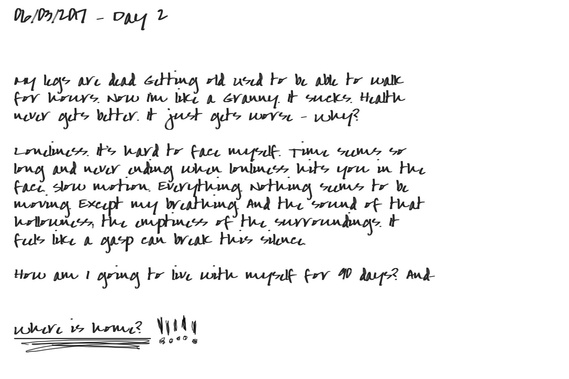 06/03/2017 - Day 2
My legs are dead Getting old used to be able to walk
for hours. Now I'm like a Granny. It sucks. Health
never gets better. It just gets worse - Why?
Loneliness. It's hard to face myself. Time seems so
long and never ending when lonliness hits you in the
face. Slow motion. Everything Nothing seems to be
moving Except my breathing And the sound of that
hollowness, the emptiness of the surroundings. It
feels like a gasp can break this silence.
How am I going to live with myself for 90 days? And
Where is home? !!!!!